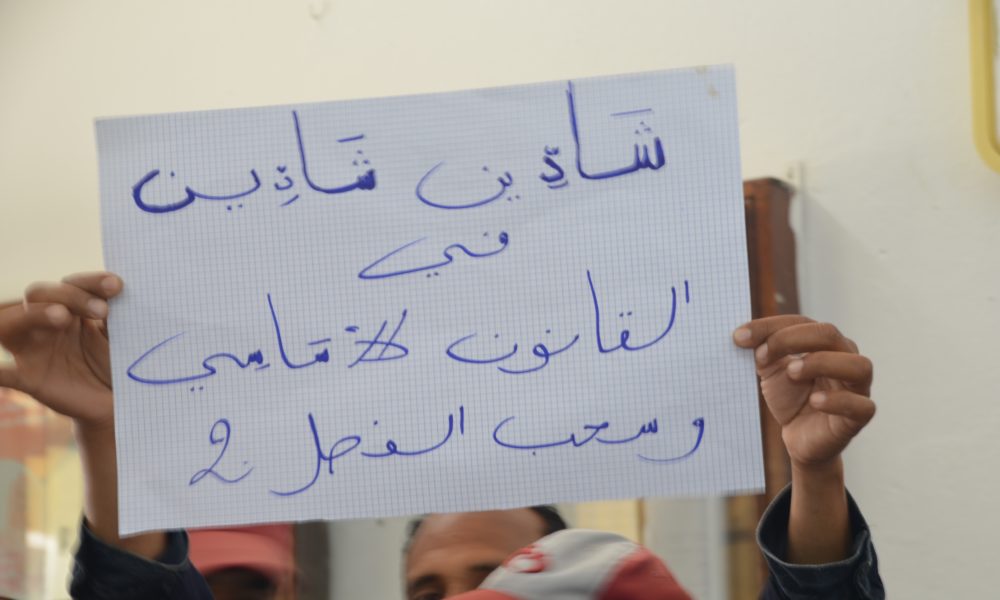 شَادِّين شَادِّين
في
القانون لأساسي
وسحب الفصل 2